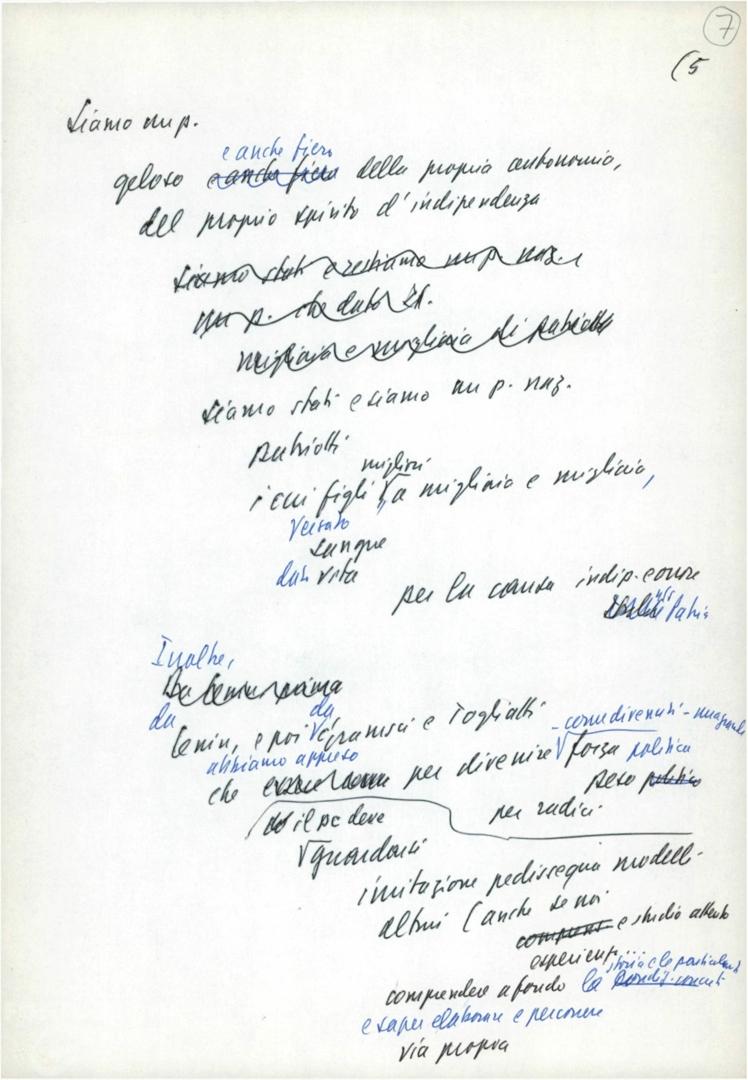 7
(5
Siamo un p.
e anche fiero
geloso e anche fiero della propria autonomia,
del proprio spirito d'indipendenza
Siamo stati e restiamo un p. naz.
un p. che dato
migliaia e migliaia di patrioti
Siamo stati e siamo un p. naz.
patrioti
migliori
i cui figli a migliaia e migliaia,
versato
sangue
dato vita
per la causa indip. e onore
Patria
Inoltre,
Da Lenin prima
da da
Lenin, e poi Gramsci e Togliatti
abbiamo appreso
che per divenire forza politica
peso politico
il pc deve per radici
guardarsi
imitazione pedissequa modelli
altrui (anche se noi
e studio attento
esperienz...
storia e le particolarit
comprendere a fondo la condiz. concret
e saper elaborare e percorrere
via propria